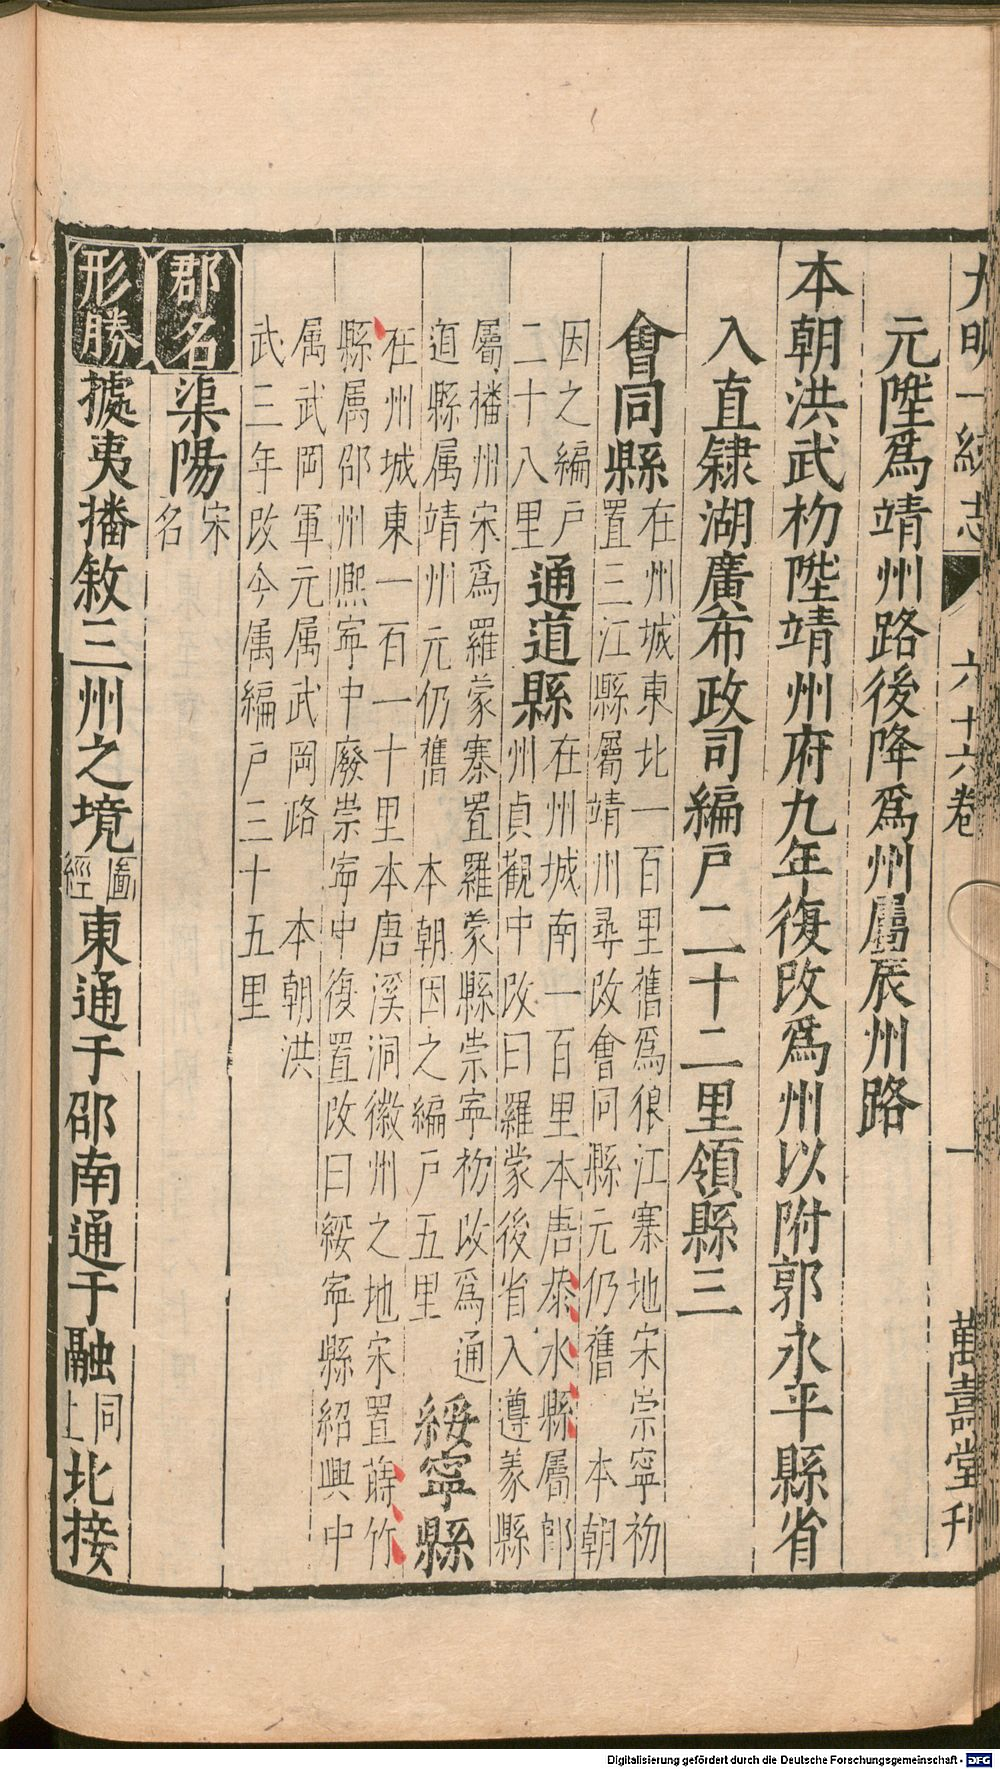 大明一統志 六十六卷 一 萬壽堂刊
元陞爲靖州路後降爲州屬辰州路
本朝洪武初陞靖州府九年復改爲州以附郭永平縣省
入直隸湖廣布政司編戶二十二里領縣三
會同縣
在州城東北一百里舊爲狼江寨地宋崇寧初
置三江縣屬靖州尋改會同縣元仍舊 本朝
因之編戶
二十八里
通道縣
在州城南一百里本唐恭水縣屬郎
州貞觀中改曰羅蒙後省入遵義縣
屬播州宋爲羅蒙寨置羅蒙縣崇寧初改爲通
道縣属靖州元仍舊 本朝因之編戶五里
綏寧縣
在州城東一百一十里本唐溪洞徽州之地宋置蒔竹
縣属邵州熈寧中廢崇寧中復置改曰綏寧縣紹興中
属武岡軍元属武岡路 本朝洪
武三年改今属編戶三十五里
郡名 渠陽
宋
名
形勝 據夷播敘三州之境
圖
經
東通于邵南通于融
同
上
北接
Digitalisierung gefördert durch die Deutsche Forschungsgemeinschaft - DFG